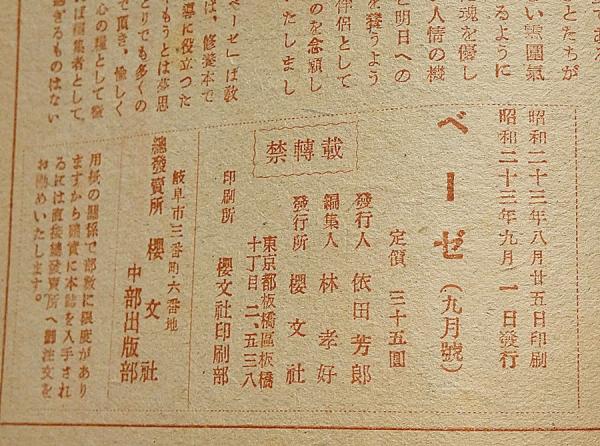 である
とたちが
い雰囲氣
るように
に魂を優し
人情の機
と明日への
を護うよう
伴侶として
のを念願し
たしまし
ベーゼ」は教
ば、修養本で
導に役立つた
もうとは夢思
とりでも多くの
で頂き、愉しく
心の糧として
ば編集者として、
過ぎるものはない
昭和二十三年八月廿五日印刷
昭和二十三年九月一日發行
ベーゼ（九月號）
定價　三十五圓
發行人　依田芳郎
編集人　林孝好
發行所　櫻文社
東京都板橋區板橋
十丁目二、五三八
印刷所　櫻文社印刷部
禁轉載
岐阜市三番町六番地
總發賣所　櫻文社
中部出版部
用紙の關係で部數に限度があり
ますから確實に本誌を入手され
るには直接總發賣所へ御注文を
お勸めいたします。